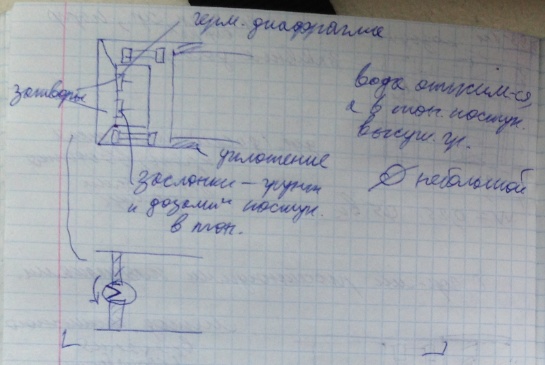 герм. диафрагма
затворы
вода отжим-ся,
а в тон. поступ.
высуш. гр.
уплотнение
∅ небольшой
заслонки – грунт
и дозами поступ.
в тон.